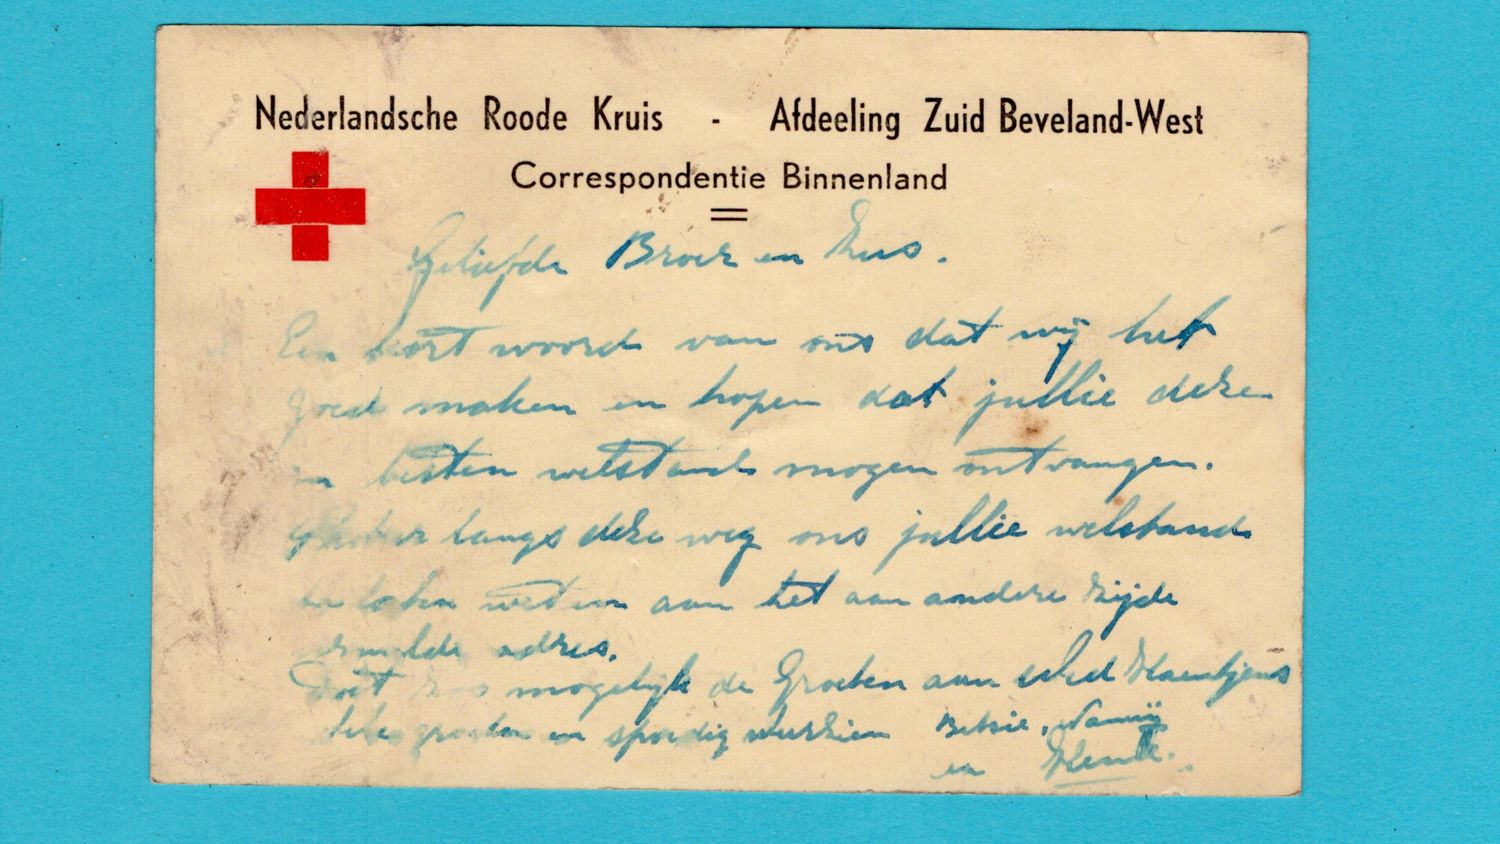 Nederlandsche Roode Kruis - Afdeeling Zuid Beveland-West
Correspondentie Binnenland
Geliefde Broer en Zus.
Een kort woord van ons dat wij het
goed maken en hopen dat jullie deze
in besten welstand mogen ontvangen.
langs deze weg ons jullie welstand
te laten weten aan het aan andere zijde
vermelde adres.
Doet zoo mogelijk de Groeten aan
groeten en spoedig weerzien Betsie,
en Henk.